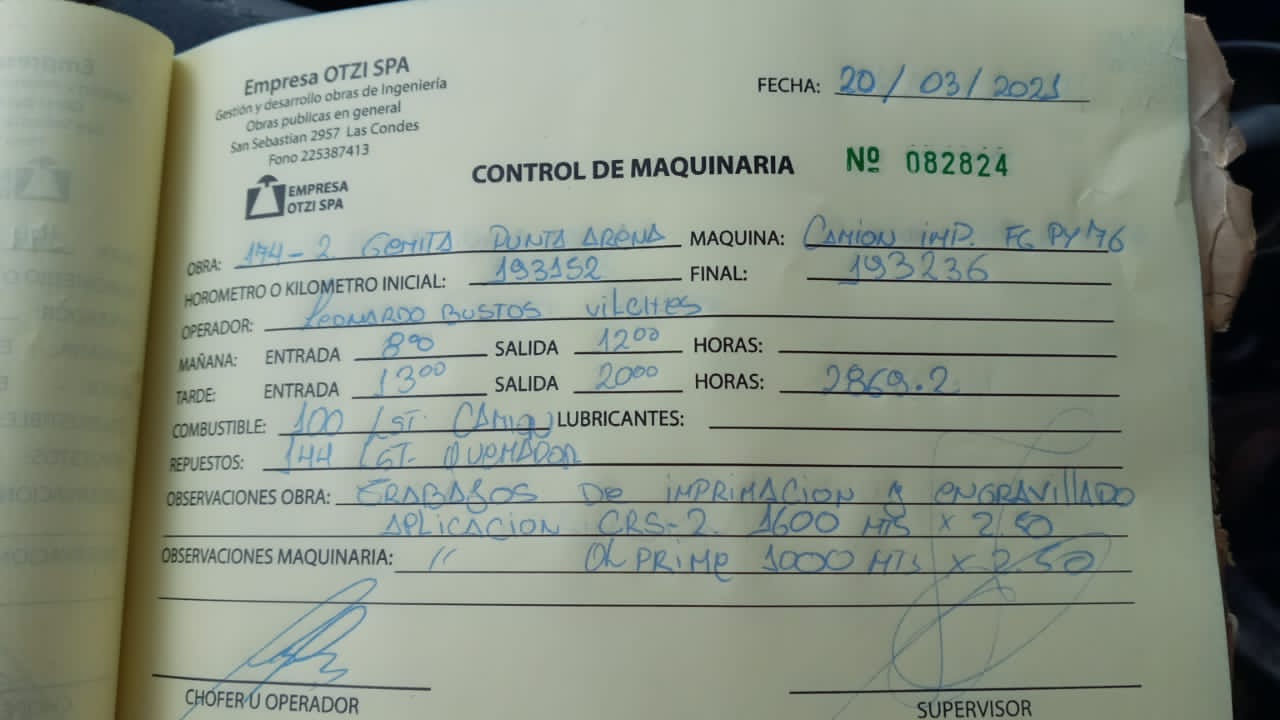 Empresa OTZI SPA
Gestión y desarrollo obras de Ingeniería
Obras publicas en general
San Sebastian 2957 Las Condes
Fono 225387413
EMPRESA
OTZI SPA
FECHA: 20/03/2021
CONTROL DE MAQUINARIA Nº 082824
OBRA: 174-2 GOMITA PUNTA ARENA MAQUINA: CAMION IMP. FG PY 76
HOROMETRO O KILOMETRO INICIAL: 193152 FINAL: 193236
OPERADOR: LEONARDO BUSTOS VILCHES
MAÑANA: ENTRADA 8:00 SALIDA 12:00 HORAS:
TARDE: ENTRADA 13:00 SALIDA 20:00 HORAS: 2869.2
COMBUSTIBLE: 100 LST. CAMION LUBRICANTES:
REPUESTOS: 144 LST. QUEMADOR
OBSERVACIONES OBRA: TRABAJOS DE IMPRIMACION Y ENGRAVILLADO
APLICACION CRS-2. 1600 MTS x 2.50
OBSERVACIONES MAQUINARIA: // OL PRIME 1000 MTS x 2.50
CHOFER U OPERADOR
SUPERVISOR